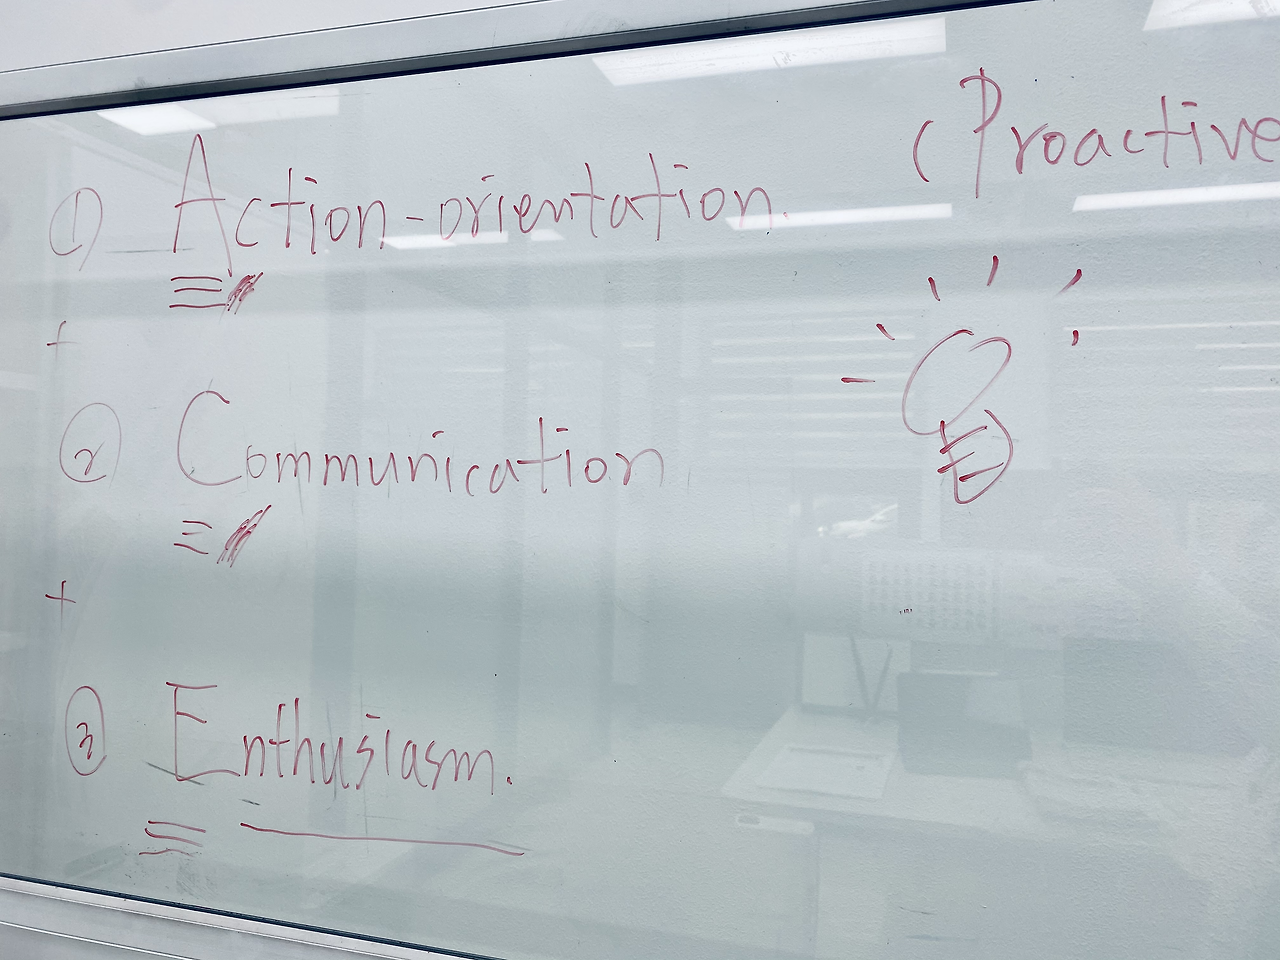 ① Action-orientation. (Proactive
+
② Communication
+
③ Enthusiasm.